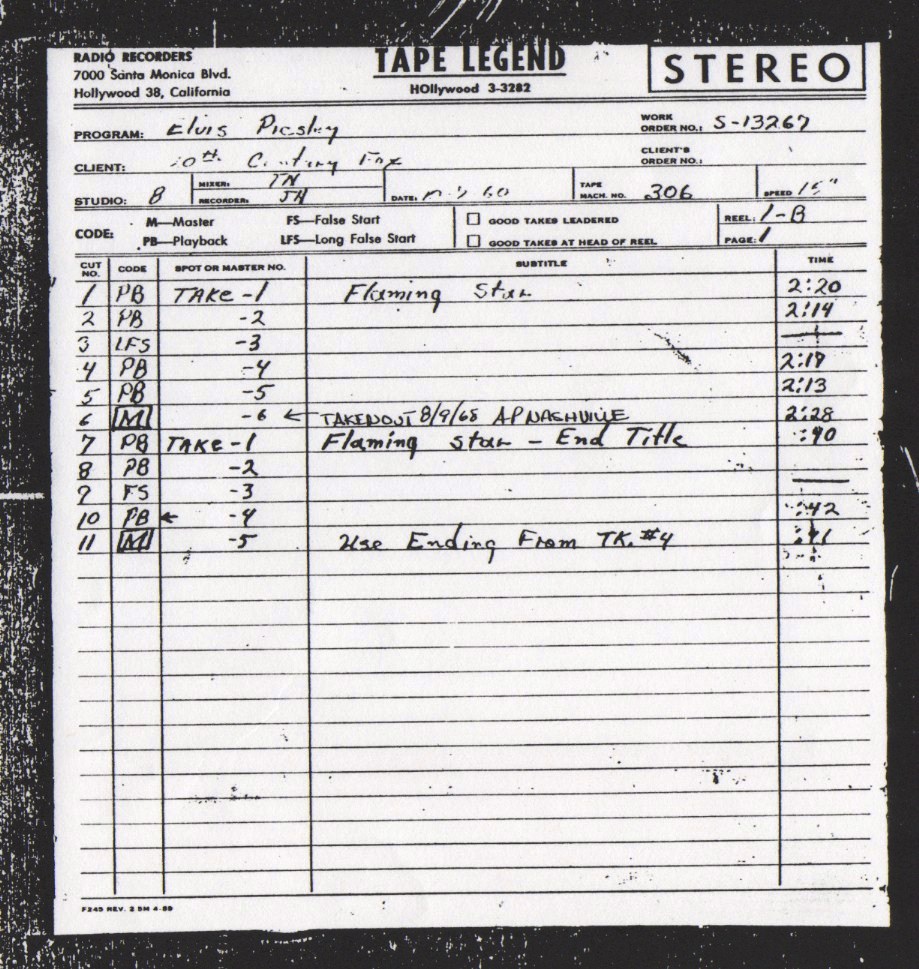 RADIO RECORDERS
7000 Santa Monica Blvd.
Hollywood 38, California
TAPE LEGEND
HOllywood 3-3282
STEREO
PROGRAM: Elvis Presley
WORK ORDER NO.: S-13267
CLIENT: 20th Century Fox
CLIENT'S ORDER NO.:
STUDIO: B
MIXER: TN
RECORDER: JH
DATE: 60
TAPE MACH. NO. 306
SPEED 15"
CODE:
M—Master FS—False Start
PB—Playback LFS—Long False Start
GOOD TAKES LEADERED
GOOD TAKES AT HEAD OF REEL
REEL: 1-B
PAGE: 1
CUT NO. CODE SPOT OR MASTER NO. SUBTITLE TIME
1 PB TAKE -1 Flaming Star 2:20
2 PB -2 2:14
3 LFS -3
4 PB -4 2:17
5 PB -5 2:13
6 M -6 ← TAKEN OUT 8/9/68 AP NASHVILLE 2:28
7 PB TAKE -1 Flaming Star - End Title :40
8 PB -2
9 FS -3 —
10 PB ← -4 :42
11 M -5 Use Ending From TK. #4 :41
F245 REV. 2 5M 4-59